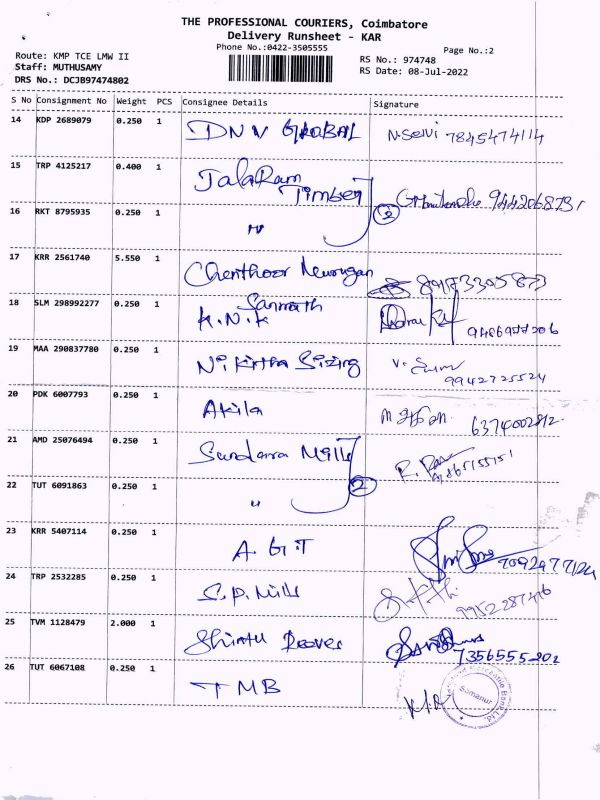 THE PROFESSIONAL COURIERS, Coimbatore
Delivery Runsheet - KAR
Phone No.:0422-3505555
Page No.:2
Route: KMP TCE LMW II
Staff: MUTHUSAMY
DRS No.: DCJB97474802
RS No.: 974748
RS Date: 08-Jul-2022
S No Consignment No Weight PCS Consignee Details Signature
14 KDP 2689079 0.250 1 DNV GLOBAL N.Selvi 7845474114
15 TRP 4125217 0.400 1 JalaRam Timber
16 RKT 8795935 0.250 1 " 2 9442068731
17 KRR 2561740 5.550 1 Chenthoor Murugan
18 SLM 298992277 0.250 1 K.N.K
19 MAA 290837780 0.250 1 Nikirtha Sizing 9942725524
20 PDK 6007793 0.250 1 Akila 6374002812
21 AMD 25076494 0.250 1 Sundara Mills
22 TUT 6091863 0.250 1 " 2
23 KRR 5407114 0.250 1 A.G.T 7092477124
24 TRP 2532285 0.250 1 S.P. Mills 9952287476
25 TVM 1128479 2.000 1 7356555202
26 TUT 6067108 0.250 1 TMB
Mercantile Bank Ltd.
Somanur